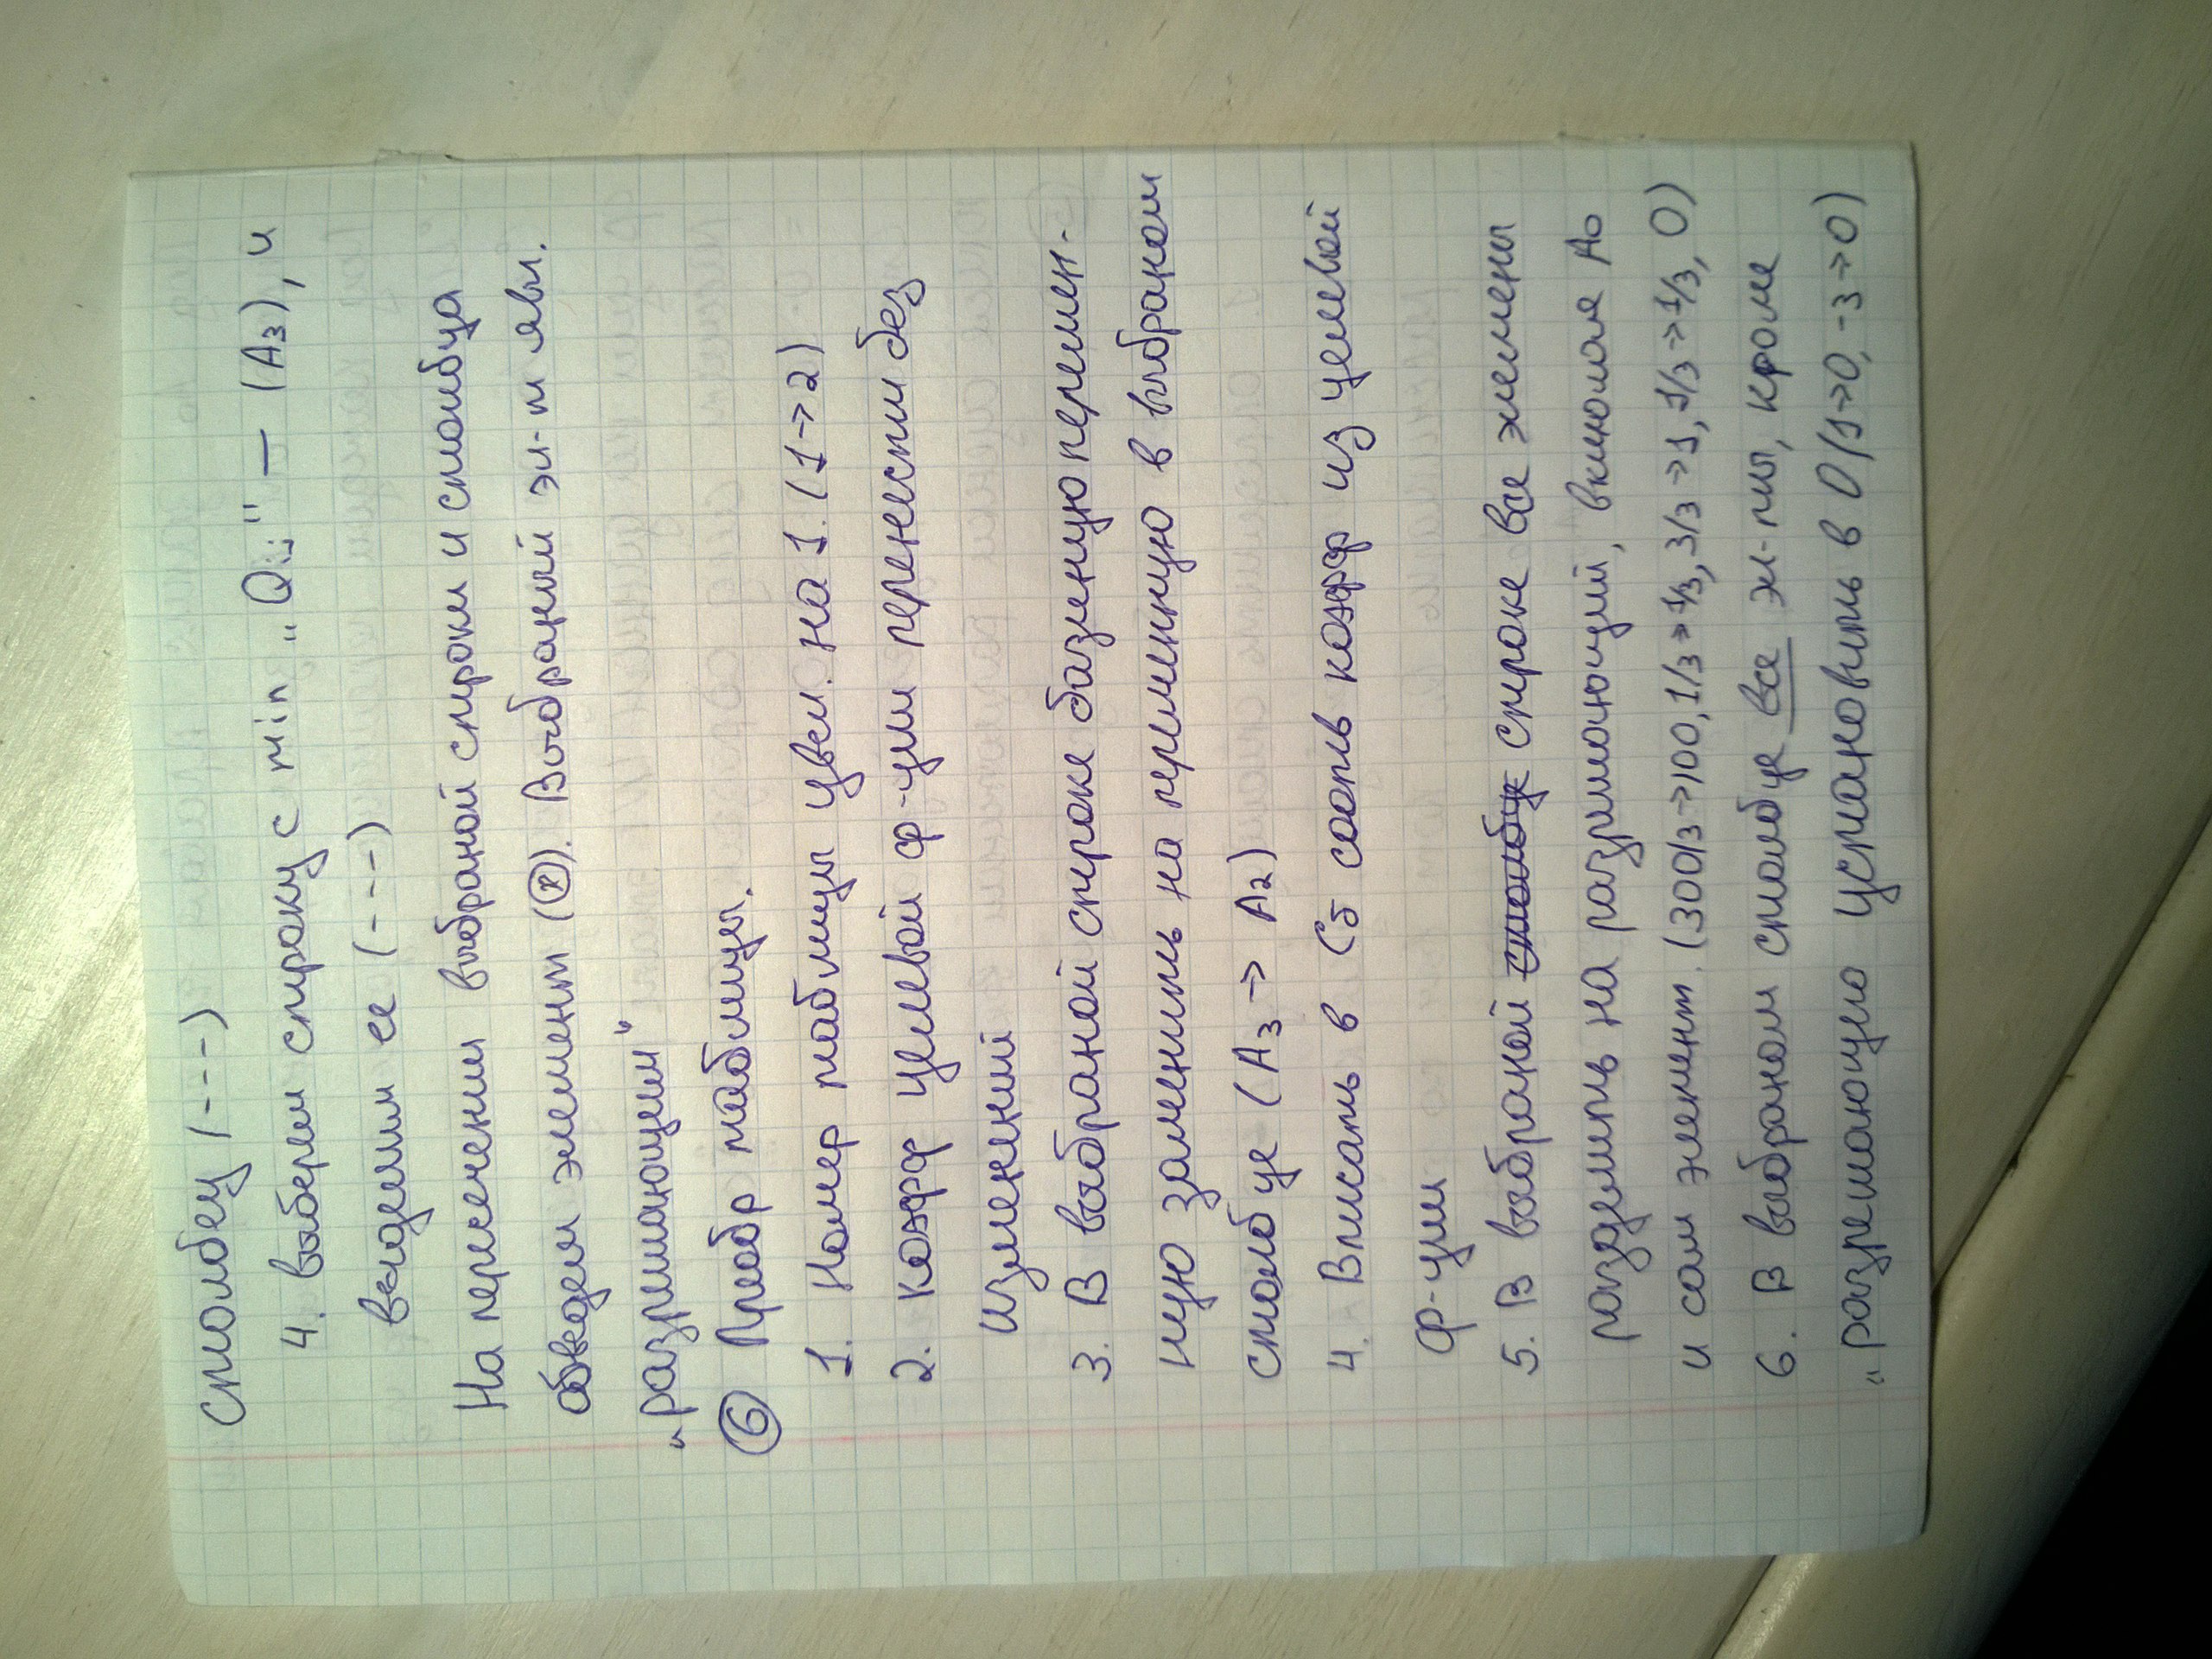 столбец (---)
4. выберем строку с min „Qij" — (A3), и
выделим ее (---)
На пересечении выбраной строки и столбца
обведем элемент (ⓧ). Выбраный эл-т явл.
„разрешающим"
⑥ Преобр таблицы.
1. Номер таблицы увел. на 1. (1→2)
2. коэфф целевой ф-ции перенести без
изменений
3. В выбраной строке базиную перемен-
ную заменить на переменную в выбраном
столбце (A3 → A2)
4. Вписать в Сб соотв коэфф из целевой
ф-ции
5. В выбраной столбце строке все элемены
разделить на разрешающий, включая A0
и сам элемент. (300/3→100, 1/3→1/3, 3/3→1, 1/3→1/3, 0)
6. В выбраном столбце все эл-ты, кроме
„разрешающего установить в 0 (1→0, -3→0)